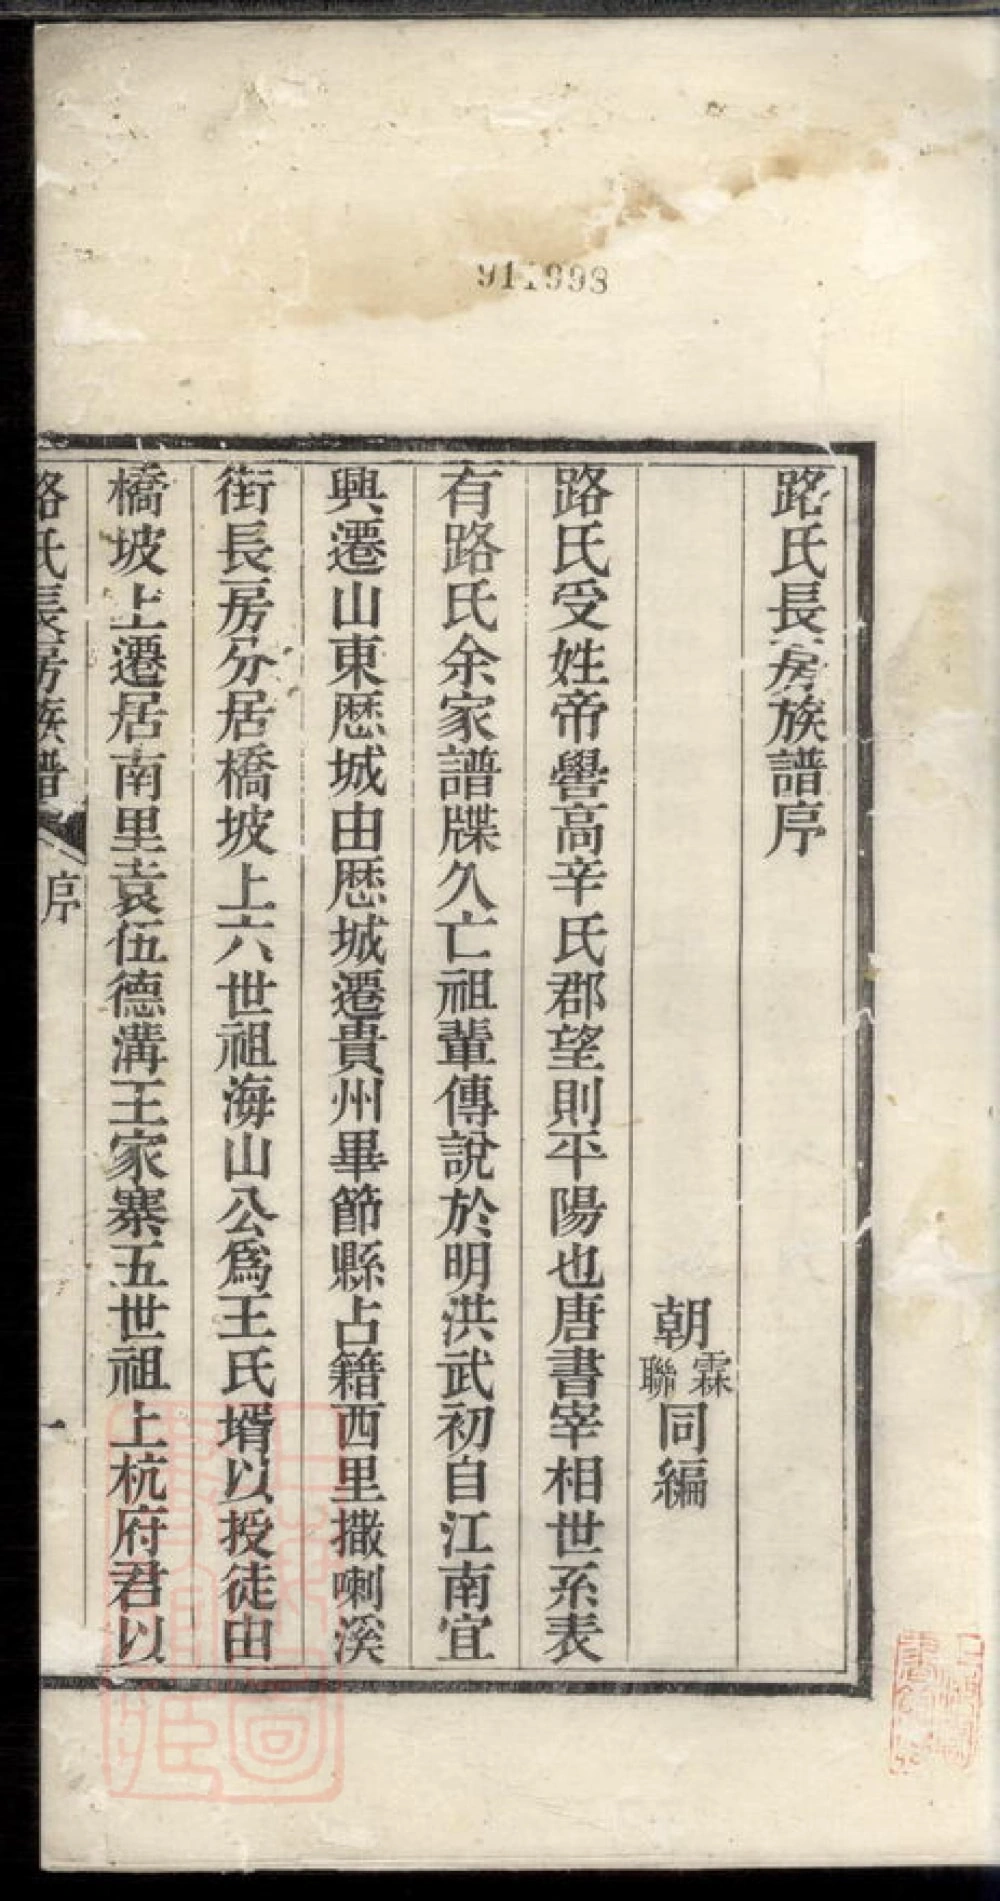 911998
路氏長房族譜序
朝霖聯同編
路氏受姓帝嚳高辛氏郡望則平陽也唐書宰相世系表
有路氏余家譜牒久亡祖輩傳說於明洪武初自江南宜
興遷山東歷城由歷城遷貴州畢節縣占籍西里撒喇溪
街長房分居橋坡上六世祖海山公爲王氏壻以授徒由
橋坡上遷居南里袁伍德溝王家寨五世祖上杭府君以
路氏長房族譜 序 一